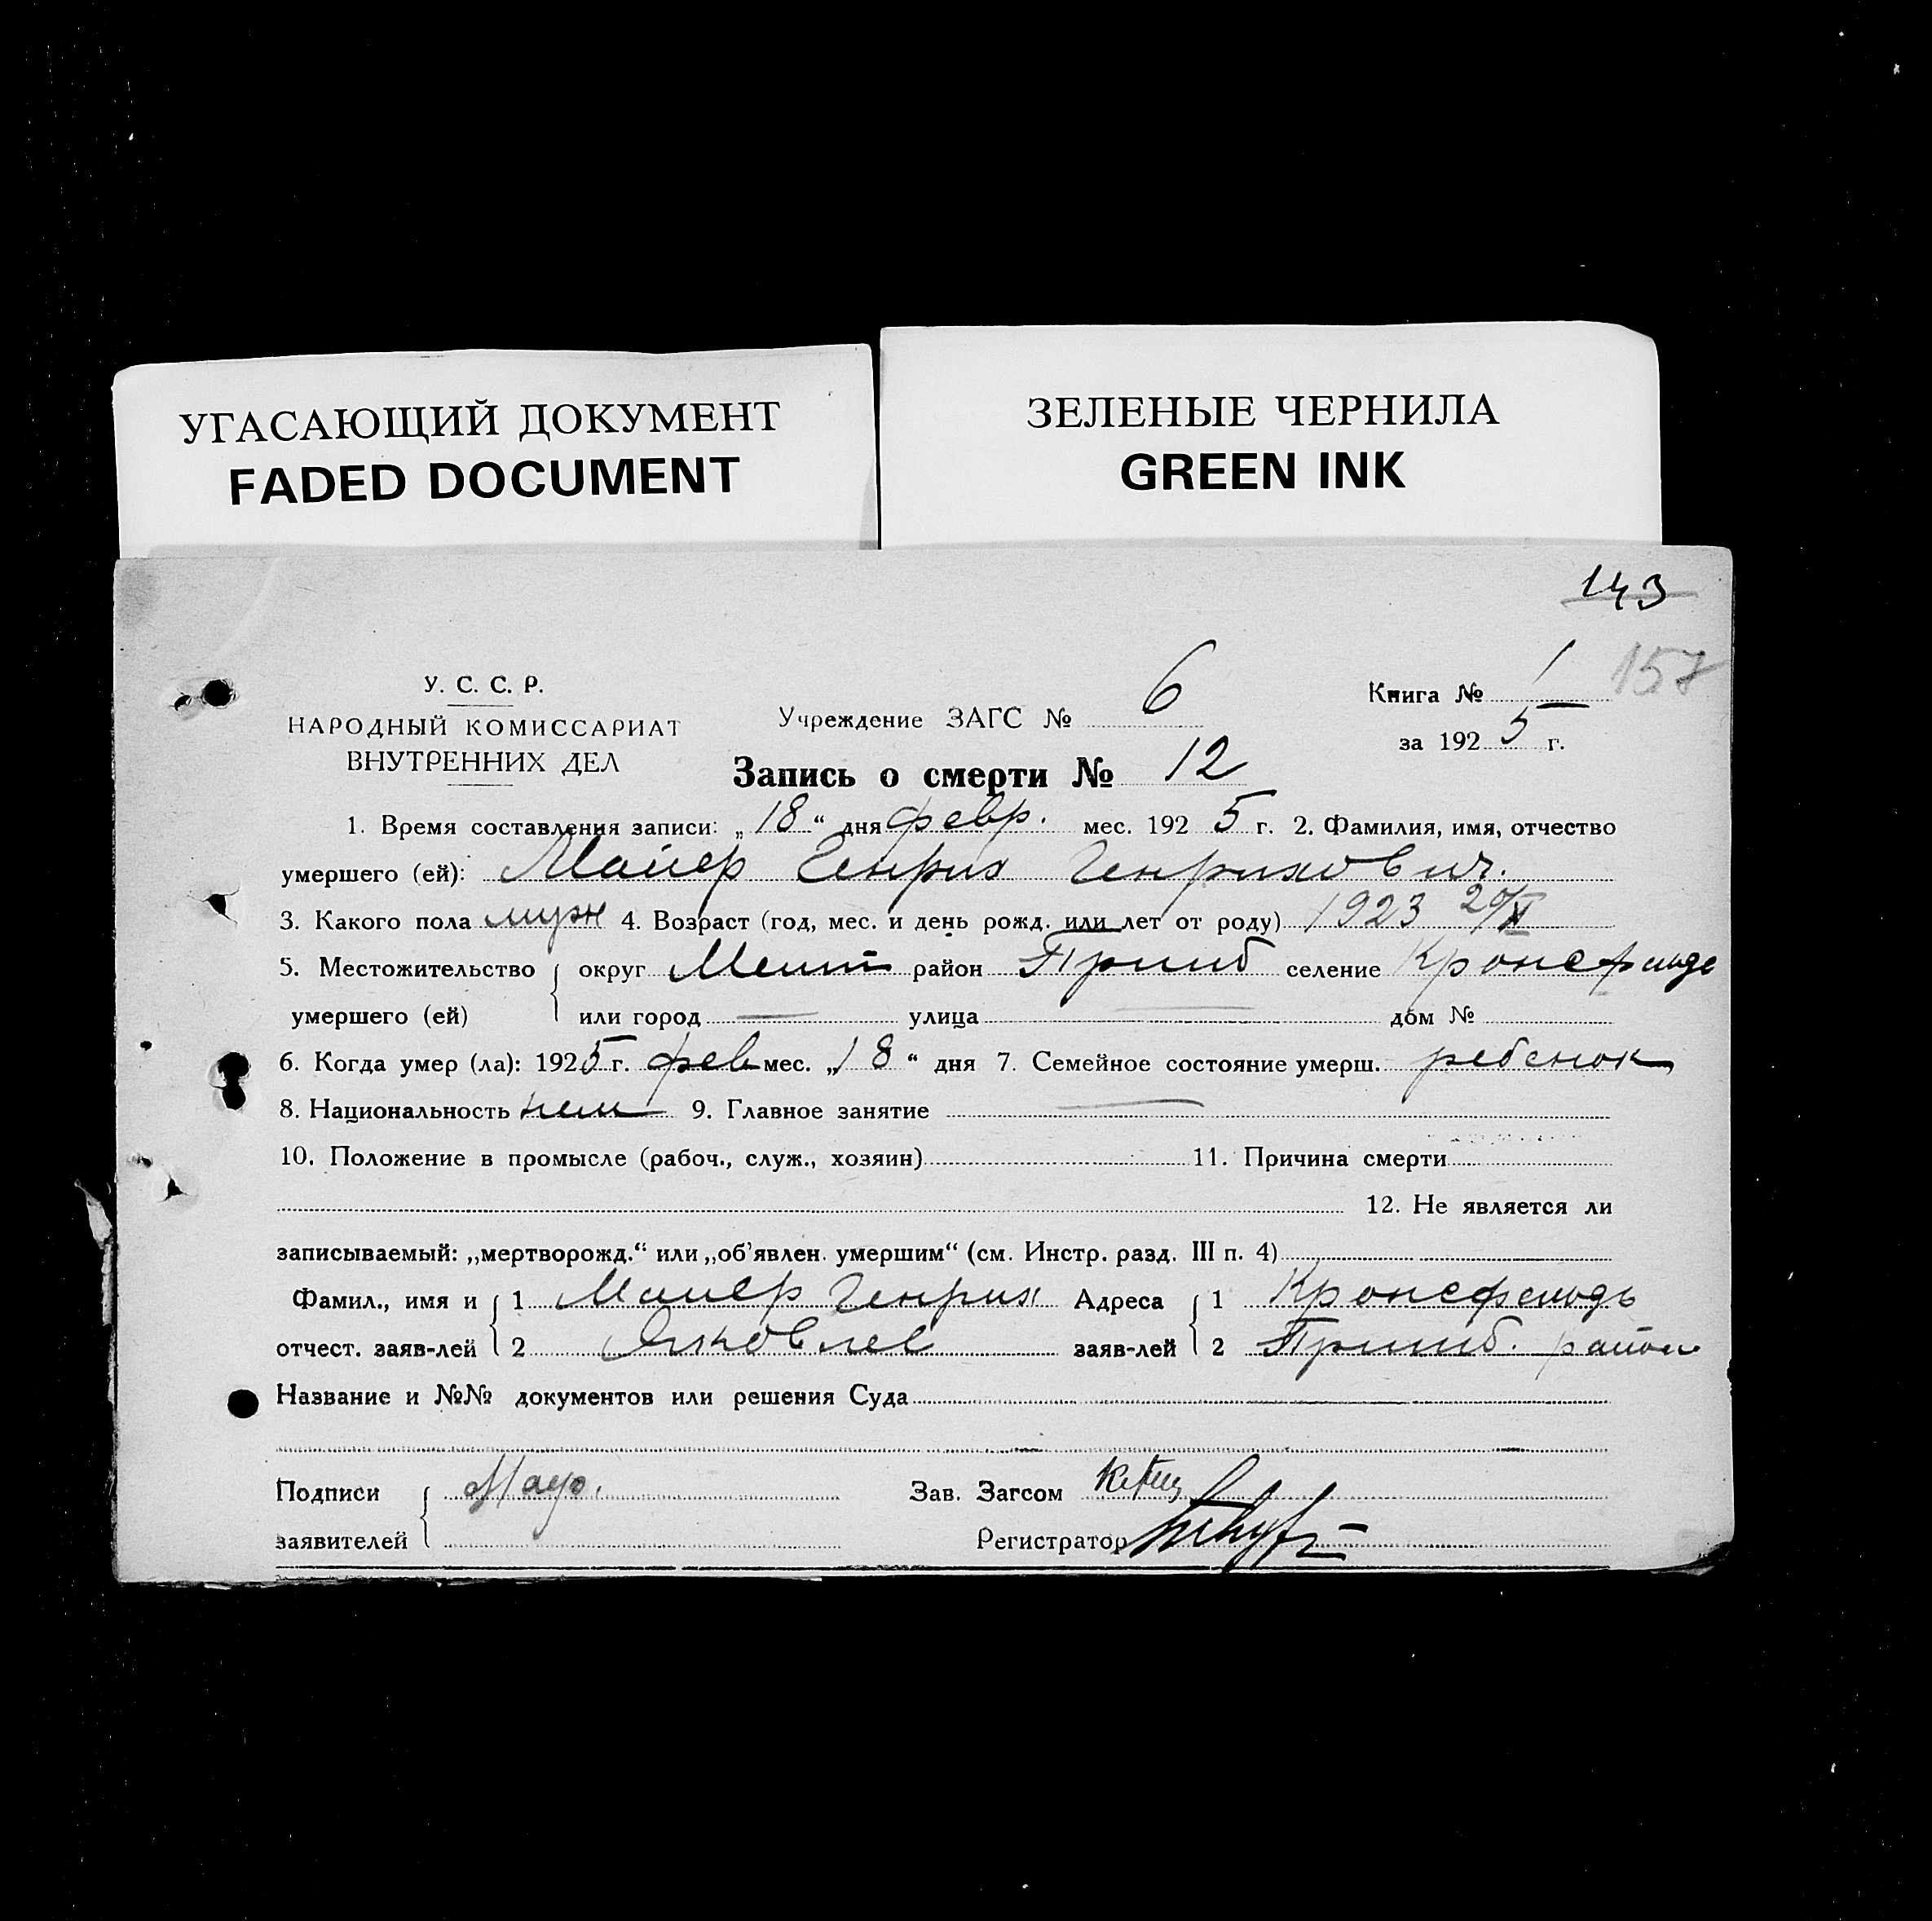 УГАСАЮЩИЙ ДОКУМЕНТ
FADED DOCUMENT
ЗЕЛЕНЫЕ ЧЕРНИЛА
GREEN INK
143
157
У. С. С. Р.
НАРОДНЫЙ КОМИССАРИАТ
ВНУТРЕННИХ ДЕЛ
Учреждение ЗАГС № 6
Книга № 1
за 1925 г.
Запись о смерти № 12
1. Время составления записи: „18“ дня февр. мес. 1925 г. 2. Фамилия, имя, отчество
умершего (ей): Майер Генрих Генрихович.
3. Какого пола муж 4. Возраст (год, мес. и день рожд. или лет от роду) 1923
5. Местожительство округ Мелит район Пришиб селение Кронсфельдъ
умершего (ей) или город — улица — дом №
6. Когда умер (ла): 1925 г. фев мес. „18“ дня 7. Семейное состояние умерш. ребенок
8. Национальность нем 9. Главное занятие —
10. Положение в промысле (рабоч., служ., хозяин) 11. Причина смерти
12. Не является ли
записываемый: „мертворожд.“ или „об'явлен. умершим“ (см. Инстр. разд. III п. 4)
Фамил., имя и 1 Майер Генрих Адреса 1 Кронсфельдъ
отчест. заяв-лей 2 Яковлев заяв-лей 2 Пришиб. район
Название и №№ документов или решения Суда
Подписи
Зав. Загсом
заявителей
Регистратор